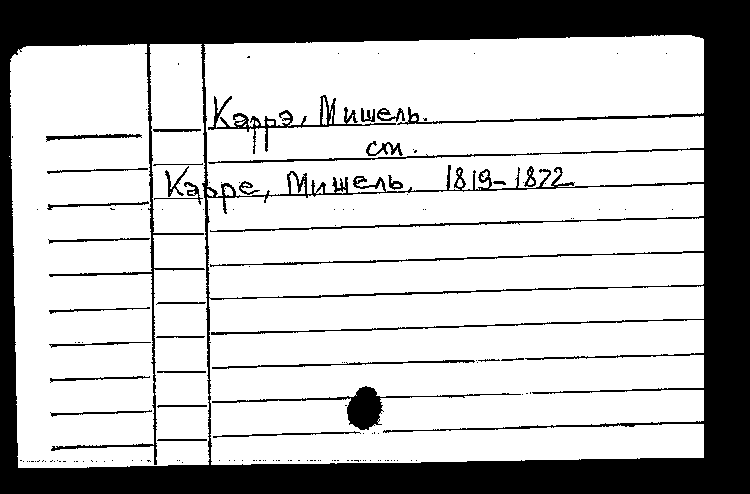 Каррэ, Мишель.
см.
Карре, Мишель. 1819-1872.